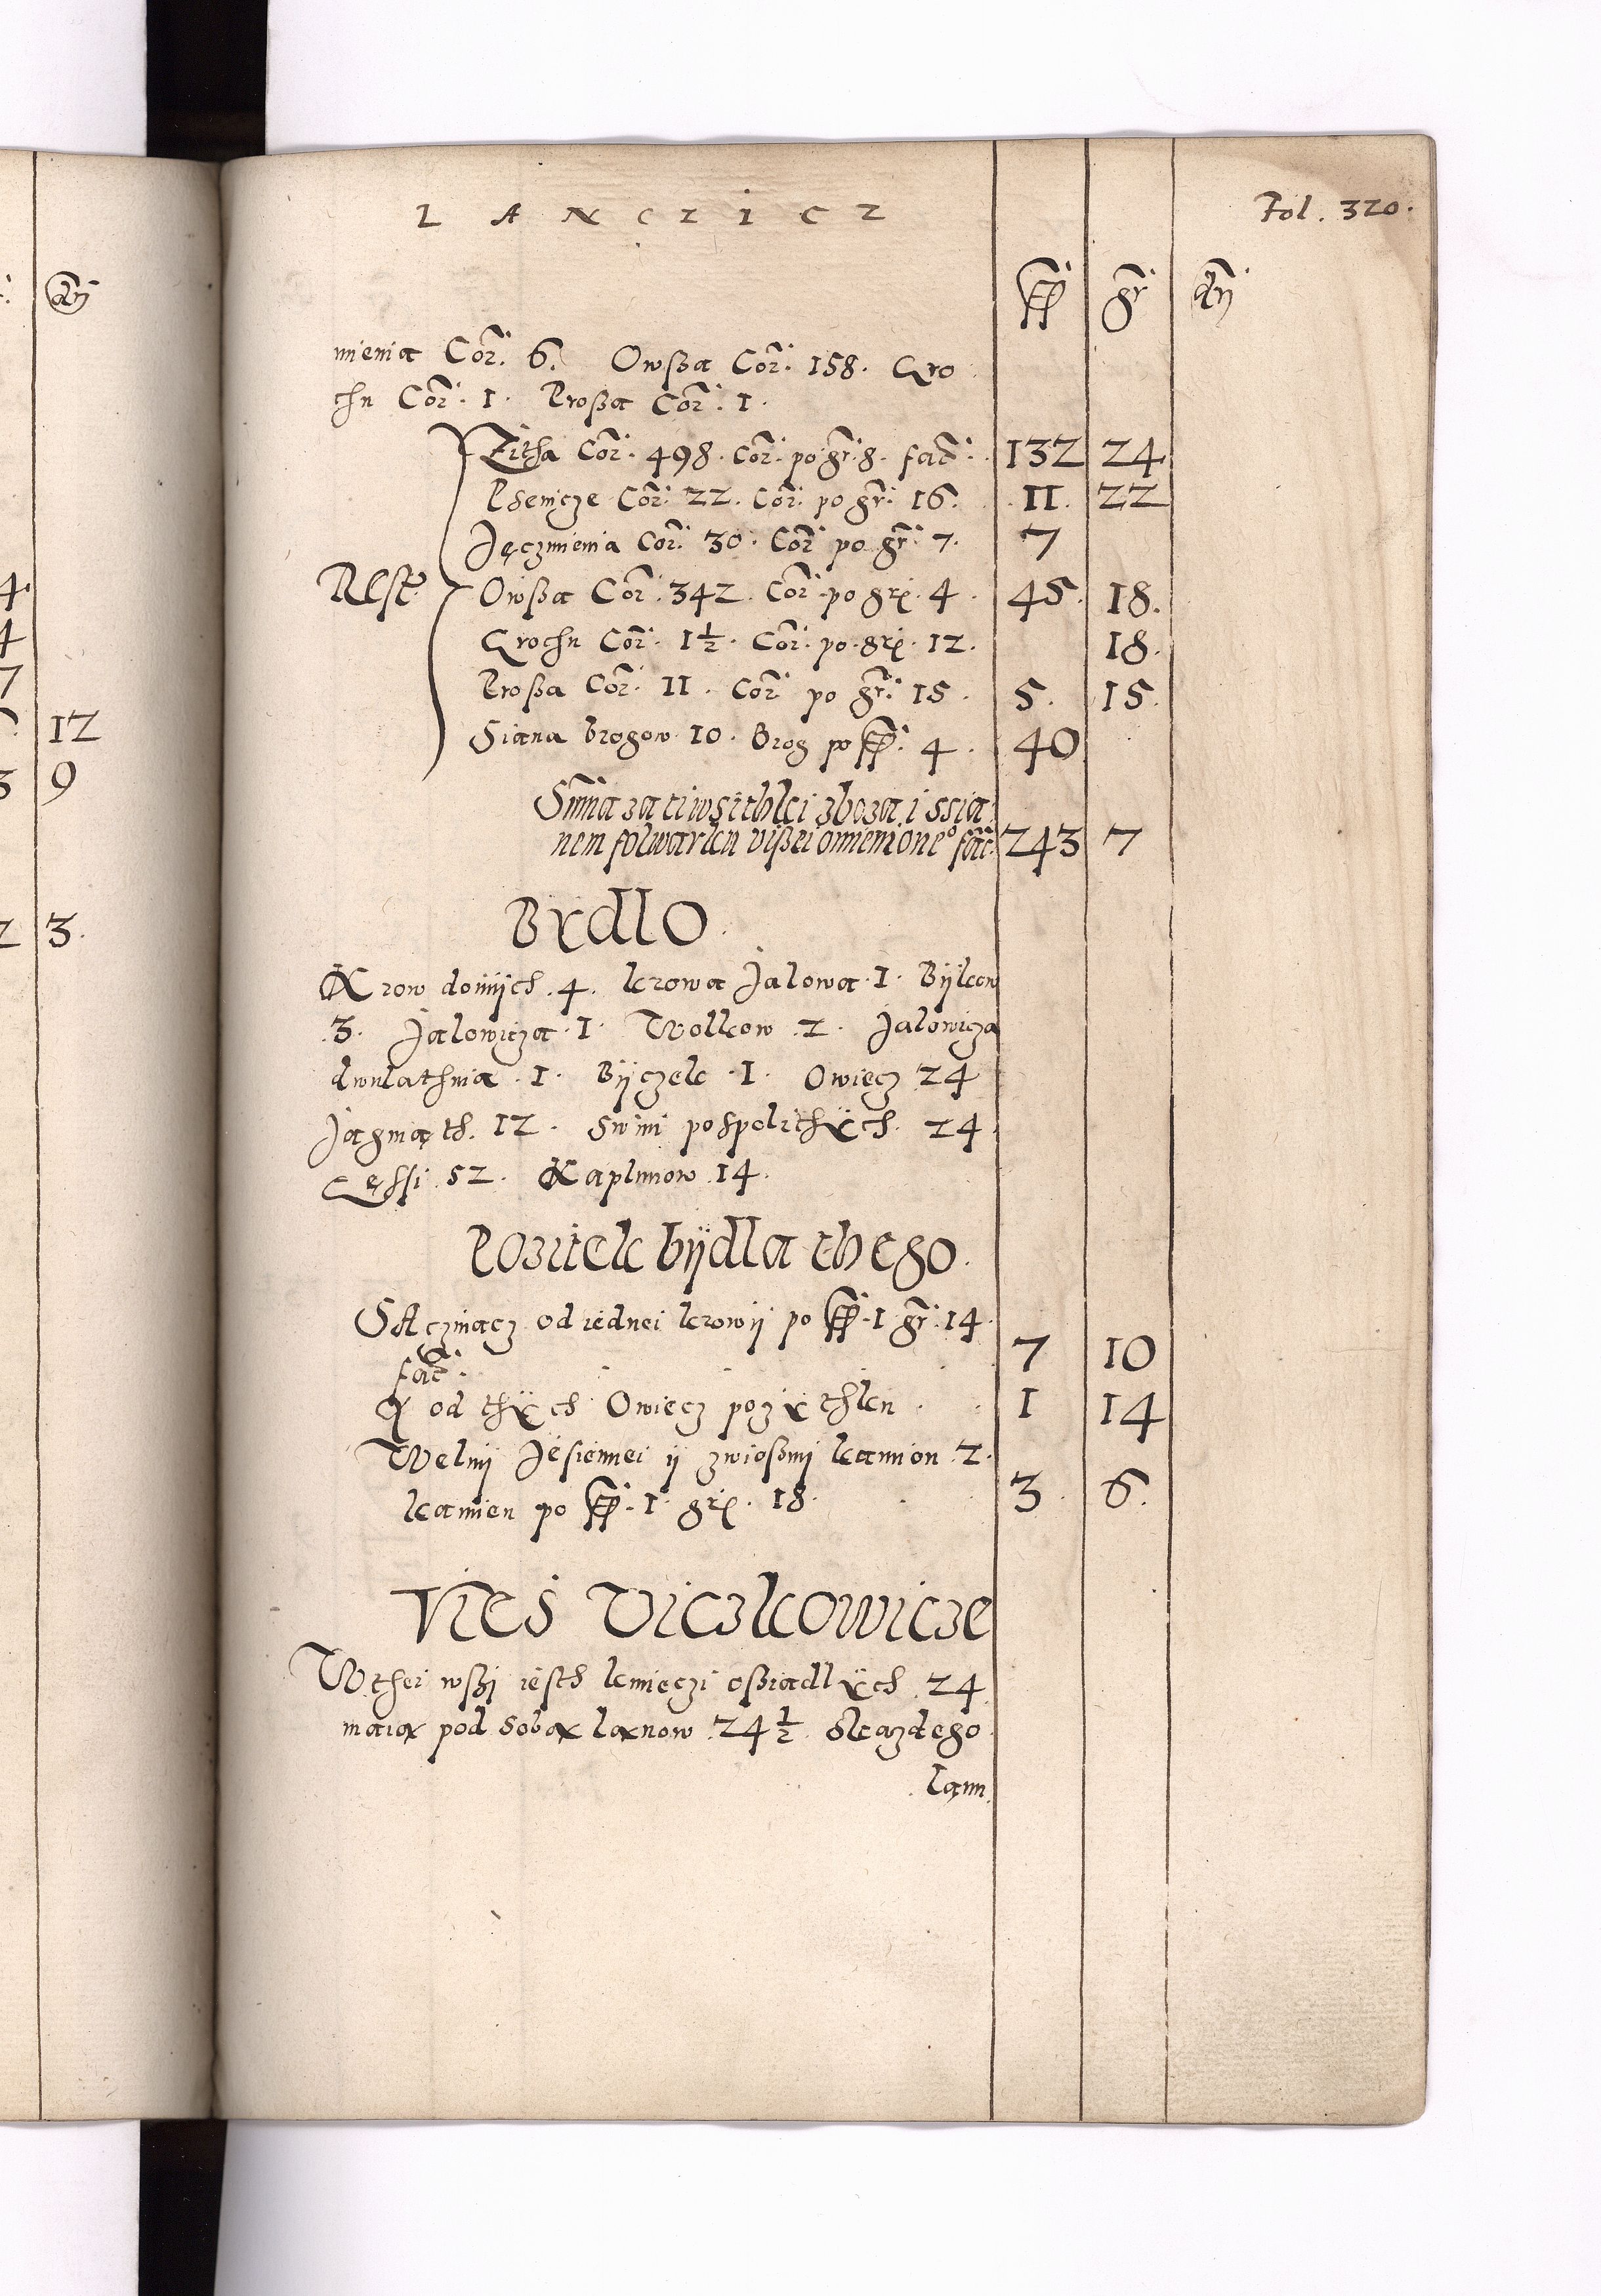 LANCZICZ
Fol. 320.
gr den
mienia Cor. 6. Owßa Cor. 158. Gro
chu Cor. 1. Proßa Cor. 1.
Zitha Cor. 498. Cor. po gr. 8. fac. 132 24
Psenicze Cor. 22. Cor. po gr. 16. 11. 22
Jęczmienia Cor. 30. Cor. po gr. 7. 7
Rest. Owßa Cor. 342. Cor. po gr. 4. 45. 18.
Grochu Cor. 1½. Cor. po gr. 12. 18.
Proßa Cor. 11. Cor. po gr. 15. 5. 15.
Siana brogow 10. Brog po 4. 40
Suma za ti wsithki zboza i s sia
nem folwarku vißei omienione° fac. 243 7
Bydlo.
Krow doinÿch .4. krowa Jalowa .1. Bÿkow
.3. Jalowicza .1. Wolkow .2. Jalowicza
dwulathnia .1. Bÿczek .1. Owiecz 24
Jagniąth. 12. Swini pospolithÿch. 24.
Gęssi .52. Kaplunow .14.
Pozitek bÿdla thego.
SAcziuącz od iednei krowÿ po 1 gr. 14
fac. 7 10
A od thÿch Owiecz pozÿthku . . 1 14
Welnÿ Jesiennei ÿ zwiosnÿ kamion .2.
kamien po .1. gr. 18. 3. 6.
Vies Viczkowicze
W thei wsÿ iesth kmieczi osiadlÿch .24
maią pod sobą łanow .24½ s kazdego
łanu
4
4
7
12
3 9
2 3.